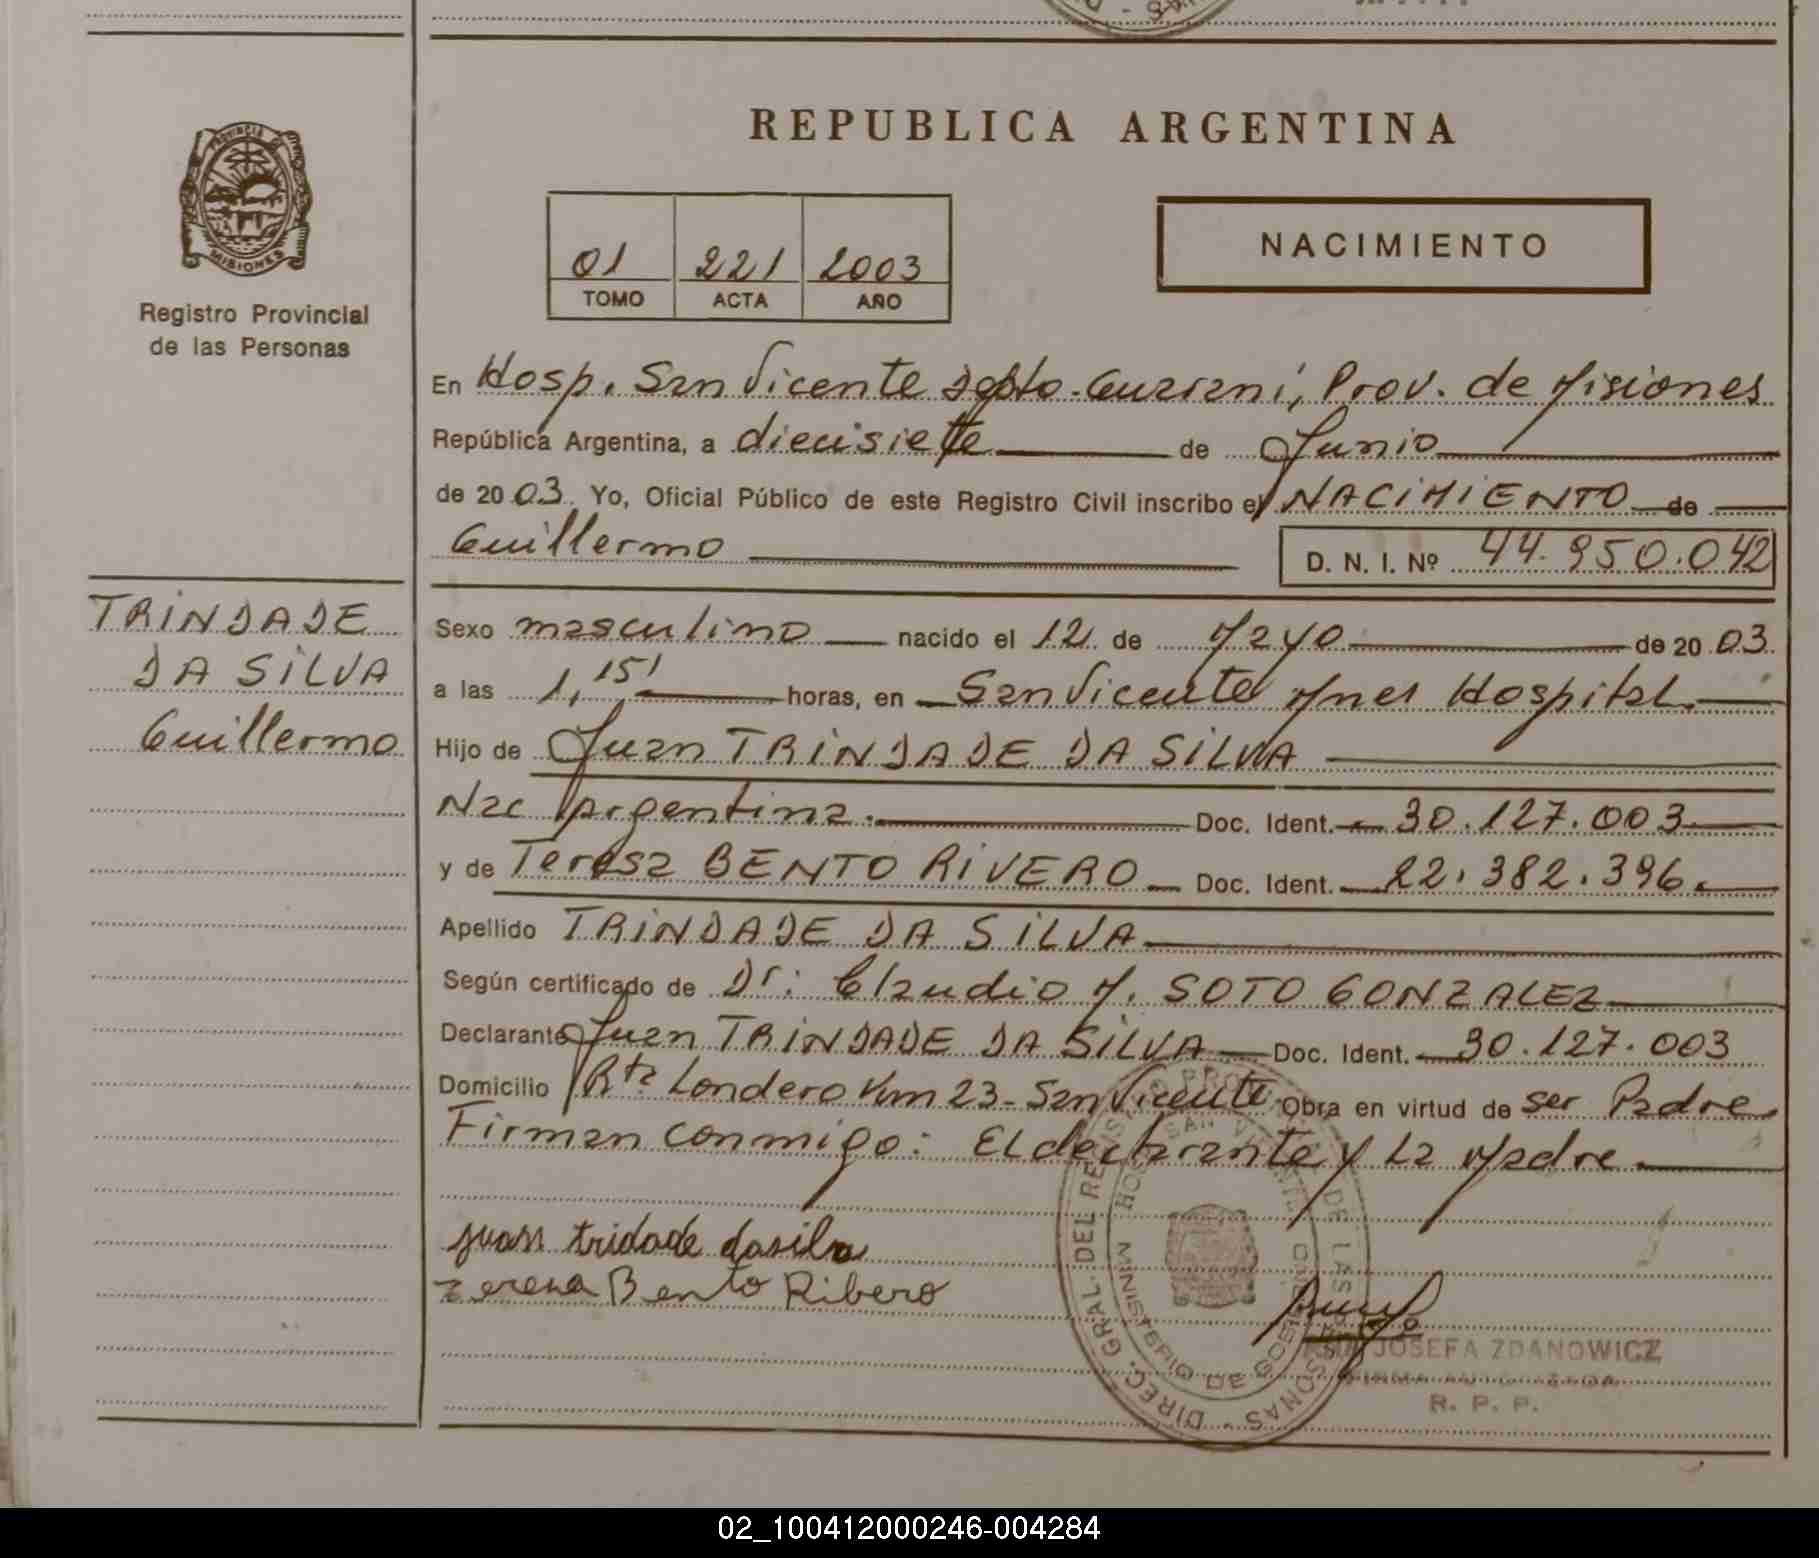 REPUBLICA ARGENTINA
PROVINCIA
MISIONES
Registro Provincial
de las Personas
01 221 2003
TOMO ACTA AÑO
NACIMIENTO
En Hosp. San Vicente Dpto. Guarani, Prov. de Misiones
República Argentina, a diecisiete de Junio
de 20 03 Yo, Oficial Público de este Registro Civil inscribo el NACIMIENTO de
Guillermo D. N. I. Nº 44.950.042
TRINDADE
DA SILVA
Guillermo
Sexo masculino nacido el 12 de Mayo de 20 03
a las 1,15' horas, en San Vicente Mnes Hospital.
Hijo de Juan TRINDADE DA SILVA
Nac Argentina. Doc. Ident. 30.127.003
y de Teresa BENTO RIVERO Doc. Ident. 22.382.396.
Apellido TRINDADE DA SILVA
Según certificado de Dr: Claudio M. SOTO GONZALEZ
Declarante Juan TRINDADE DA SILVA Doc. Ident. 30.127.003
Domicilio Rta Londero Km 23 - San Vicente Obra en virtud de ser Padre
Firman conmigo: El declarante y La Madre.
juan tridade dasilva
Terena Bento Ribero
DIREC. GRAL. DEL REGISTRO PROV. DE LAS PERSONAS
MINISTERIO DE GOBIERNO
SAN VICENTE
JOSEFA ZDANOWICZ
FIRMA AUTORIZADA
R. P. P.
02_100412000246-004284